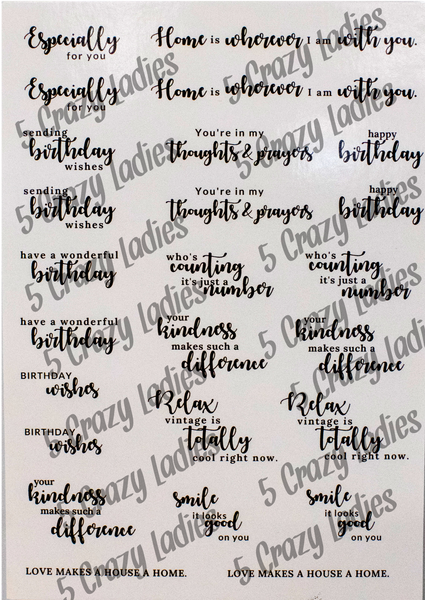 Especially
for you
Home is wherever I am with you.
Especially
for you
Home is wherever I am with you.
sending
birthday
wishes
You're in my
Thoughts & prayers
happy
birthday
sending
birthday
wishes
You're in my
Thoughts & prayers
happy
birthday
have a wonderful
birthday
who's
counting
it's just a
number
who's
counting
it's just a
number
have a wonderful
birthday
your
kindness
makes such a
difference
your
kindness
makes such a
difference
BIRTHDAY
wishes
Relax
vintage is
totally
cool right now.
Relax
vintage is
totally
cool right now.
BIRTHDAY
wishes
your
kindness
makes such a
difference
smile
it looks
good
on you
smile
it looks
good
on you
LOVE MAKES A HOUSE A HOME.
LOVE MAKES A HOUSE A HOME.
5 Crazy Ladies
5 Crazy Ladies
5 Crazy Ladies
5 Crazy Ladies
5 Crazy Ladies
5 Crazy Ladies
5 Crazy Ladies
5 Crazy Ladies
5 Crazy Ladies
5 Crazy Ladies
5 Crazy Ladies
5 Crazy Ladies